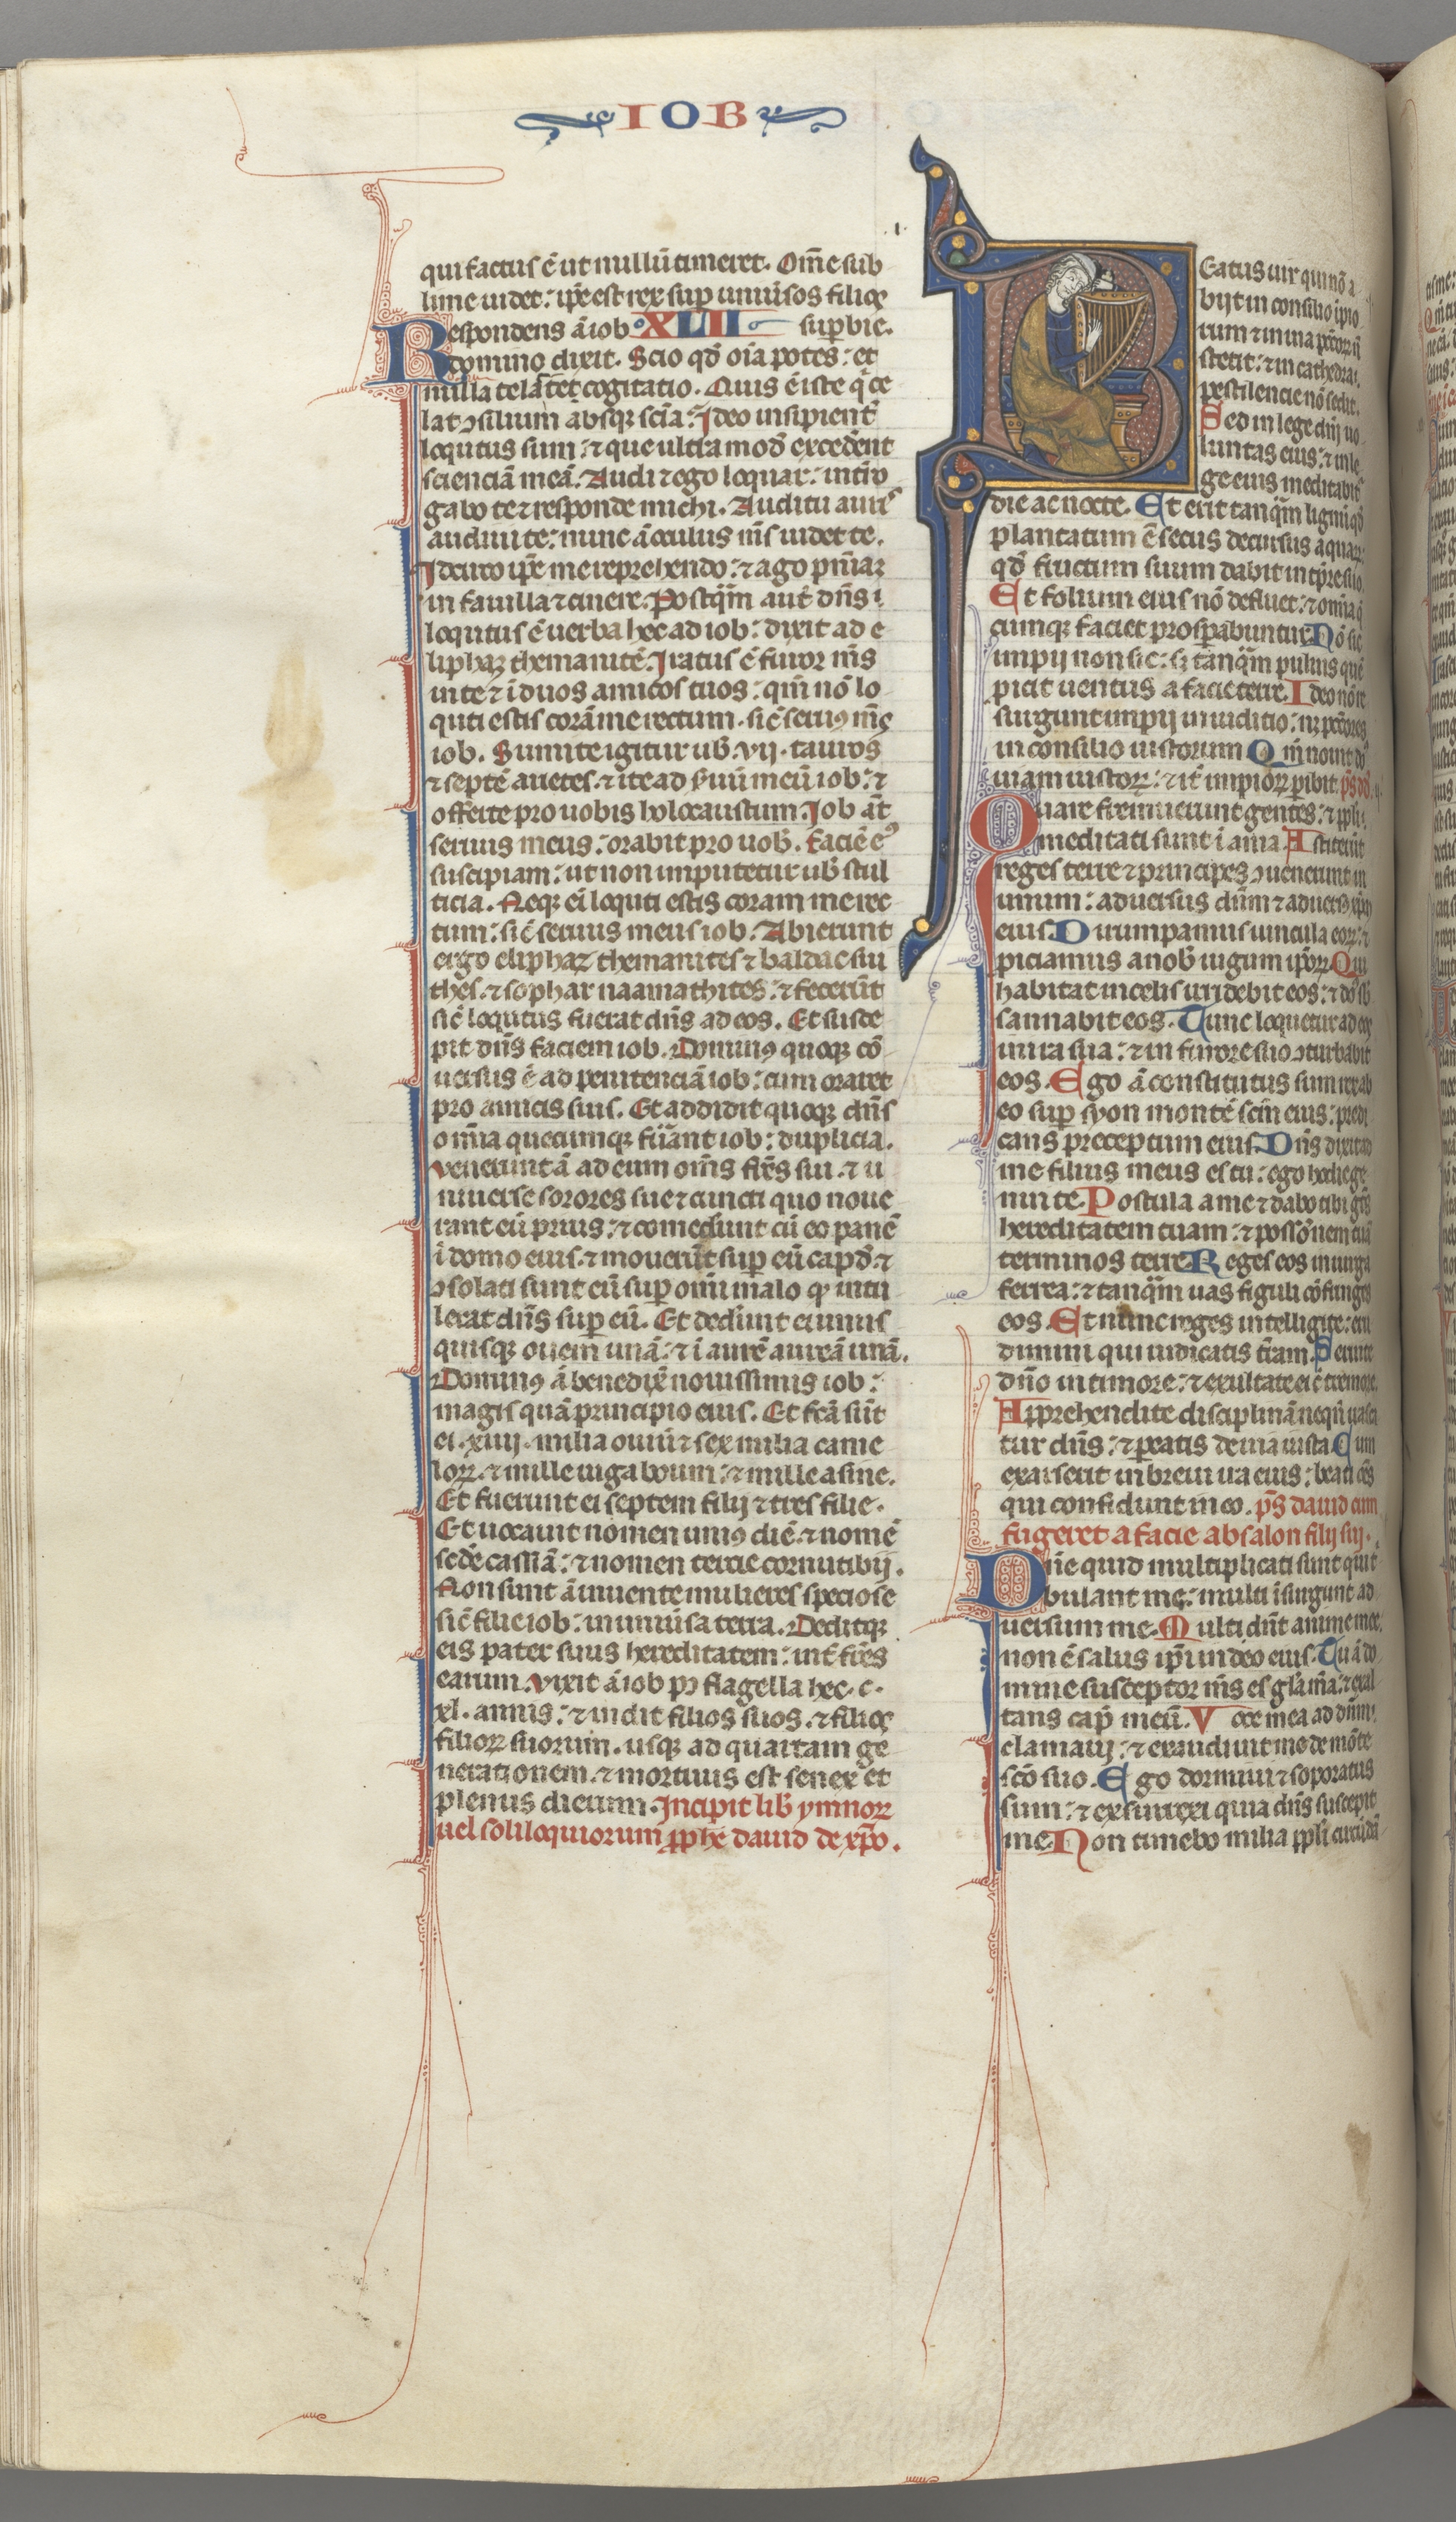 IOB
qui factus ē ut nullū timeret. Om̄e sub
lime uidet: ip̄e est rex sup uniūsos filios
Respondens ā iob XLII suꝑbie.
domino dixit. Scio qd̄ oīa potes: et
nulla te latet cogitatio. Quis ē iste q̄ ce
lat ↄsilium absqꝫ scīa: Ideo insipient̄
locutus sum: ⁊ que ultra mod̄ excedent
scienciā meā. Audi ⁊ ego loquar: int̄ro
gabo te ⁊ responde michi. Auditu auris
audiui te: nunc ā oculus m̄s uidet te.
Idcirco ip̄e me reprehendo: ⁊ ago pn̄iaꝫ
in fauilla ⁊ cinere. Postq̄m aut̄ dn̄s
loqutus ē uerba hec ad iob: dixit ad e
liphaz themanitē. Iratus ē furor m̄s
in te ⁊ ī duos amicos tuos: qm̄ nō lo
quti estis corā me rectum. sic̄ seruꝰ m̄s
iob. Sumite igitur ub̄. vij. tauros
⁊ septē arietes. ⁊ ite ad s̄uū meū iob: ⁊
offerte pro uobis holocaustum. Iob āt
seruus meus: orabit pro uob̄. faciē eꝰ
suscipiam: ut non imputetur ub̄ stul
ticia. Neqꝫ ei loquti estis coram me rec
tum: sic̄ seruus meus iob. Abierunt
ergo eliphaz themanites ⁊ baldac siu
thes. ⁊ sophar naamathites: ⁊ fecerūt
sic̄ loqutus fuerat dn̄s ad eos. Et susce
pit dn̄s faciem iob. Dominꝰ quoqꝫ cō
uersus ē ad penitenciā iob: cum oraret
pro amicis suis. Et addidit quoqꝫ dn̄s
omīa quecumqꝫ fūant iob: duplicia.
Venerunt ā ad eum om̄s fr̄s sui. ⁊ u
niuerse sorores sue ⁊ cuncti quo noue
rant eū prius: ⁊ comederunt cū eo panē
ī domo eius. ⁊ mouerūt sup eū cap̄d̄. ⁊
ↄsolati sunt eū sup omī malo qͦ intu
lerat dn̄s sup eū. Et dederunt ei unus
quisqꝫ ouem unā: ⁊ ī aurē aureā unā.
Dominꝰ ā benedix̄ nouissimis iob:
magis quā principio eius. Et fc̄a sūt
ei. xiiij. milia ouiū ⁊ sex milia came
loꝝ. ⁊ mille iuga boum: ⁊ mille asine.
Et fuerunt ei septem filij ⁊ tres filie.
Et uocauit nomen uniꝰ diē. ⁊ nomē
sedē cassiā: ⁊ nomen tercie cornutibij.
Non sunt ā inuente mulieres speciose
sic̄ filie iob: in uniūsa terra. Deditqꝫ
eis pater suus hereditatem: int̄ fr̄es
earum. Vixit ā iob pꝰ flagella hec. c.
xl. annis: ⁊ uidit filios suos. ⁊ filios
filioꝝ suorum. usqꝫ ad quartam ge
nerationem. ⁊ mortuus est senex et
plenus dierum. Incipit lib̄ ymnoꝝ
uel soliloquiorum ꝓphe dauid de xp̄o.
Beatus uir qui nō a
bijt in consilio ipio
rum ⁊ in uia pc̄toꝝ ñ
stetit: ⁊ in cathedra
pestilencie nō sedit.
Sed in lege dn̄i uo
luntas eius: ⁊ in le
ge eius meditabit̄
die ac nocte. Et erit tanq̄m lignū qd̄
plantatum ē secus decursus aquaꝝ:
qd̄ fructum suum dabit in tp̄re suo
Et folium eius nō defluet: ⁊ omīa q̄
cumqꝫ faciet prospabuntur Nō sic
impij non sic: sꝫ tanq̄m puluis quē
picit uentus a facie terre. Ideo nō re
surgunt impij in iuditio: nꝫ pc̄tores
in consilio iustorum Qm̄ nouit dn̄s
uiam iustoꝝ: ⁊ it̄ impioꝝ ꝑibit. ps̄ dd̄
Quare fremuerunt gentes: ⁊ ppl̄i
meditati sunt ī ania Astiterūt
reges terre ⁊ principes ↄuenerunt in
unum: aduersus dn̄m ⁊ aduersꝰ xp̄m
eius Dirumpamus uincula eoꝝ: ⁊
piciamus a nob̄ iugum ipoꝝ Qui
habitat in celis irridebit eos: ⁊ dn̄s sb̄
sannabit eos. Tunc loquetur ad eos
in ira sua: ⁊ in furore suo ↄturbabit
eos. Ego ā constitutus sum rex ab
eo sup syon montē sc̄m eius: predi
cans preceptum eius Dn̄s dixit ad
me filius meus es tu: ego hodie ge
nui te. Postula a me ⁊ dabo tibi gn̄s
hereditatem tuam: ⁊ possōnem tuā
terminos terre Reges eos in uirga
ferrea: ⁊ tanq̄m uas figuli cōfringes
eos. Et nunc reges intelligite: eru
dimini qui iudicatis t̄ram. Seruite
dn̄o in timore: ⁊ exultate ei c̄ tremore.
Apprehendite disciplinā neqn̄ irasca
tur dn̄s: ⁊ peatis de uia iusta Cum
exarserit in breui ira eius: beati om̄s
qui confidunt in eo. ps̄ dauid cum
fugeret a facie absalon filij sui.
Dn̄e quid multiplicati sunt qui t
bulant me: multi īsurgunt ad
uersum me. Multi dn̄t anime mee
non ē salus ip̄i in deo eius. Tu ā do
mine susceptor m̄s es glā m̄a: ⁊ exal
tans cap̄ meū. Voce mea ad dn̄m
clamaui: ⁊ exaudiuit me de mōte
sc̄o suo. Ego dormiui ⁊ soporatus
sum: ⁊ exsurrexi quia dn̄s suscepit
me Non timebo milia ppl̄i circūdā